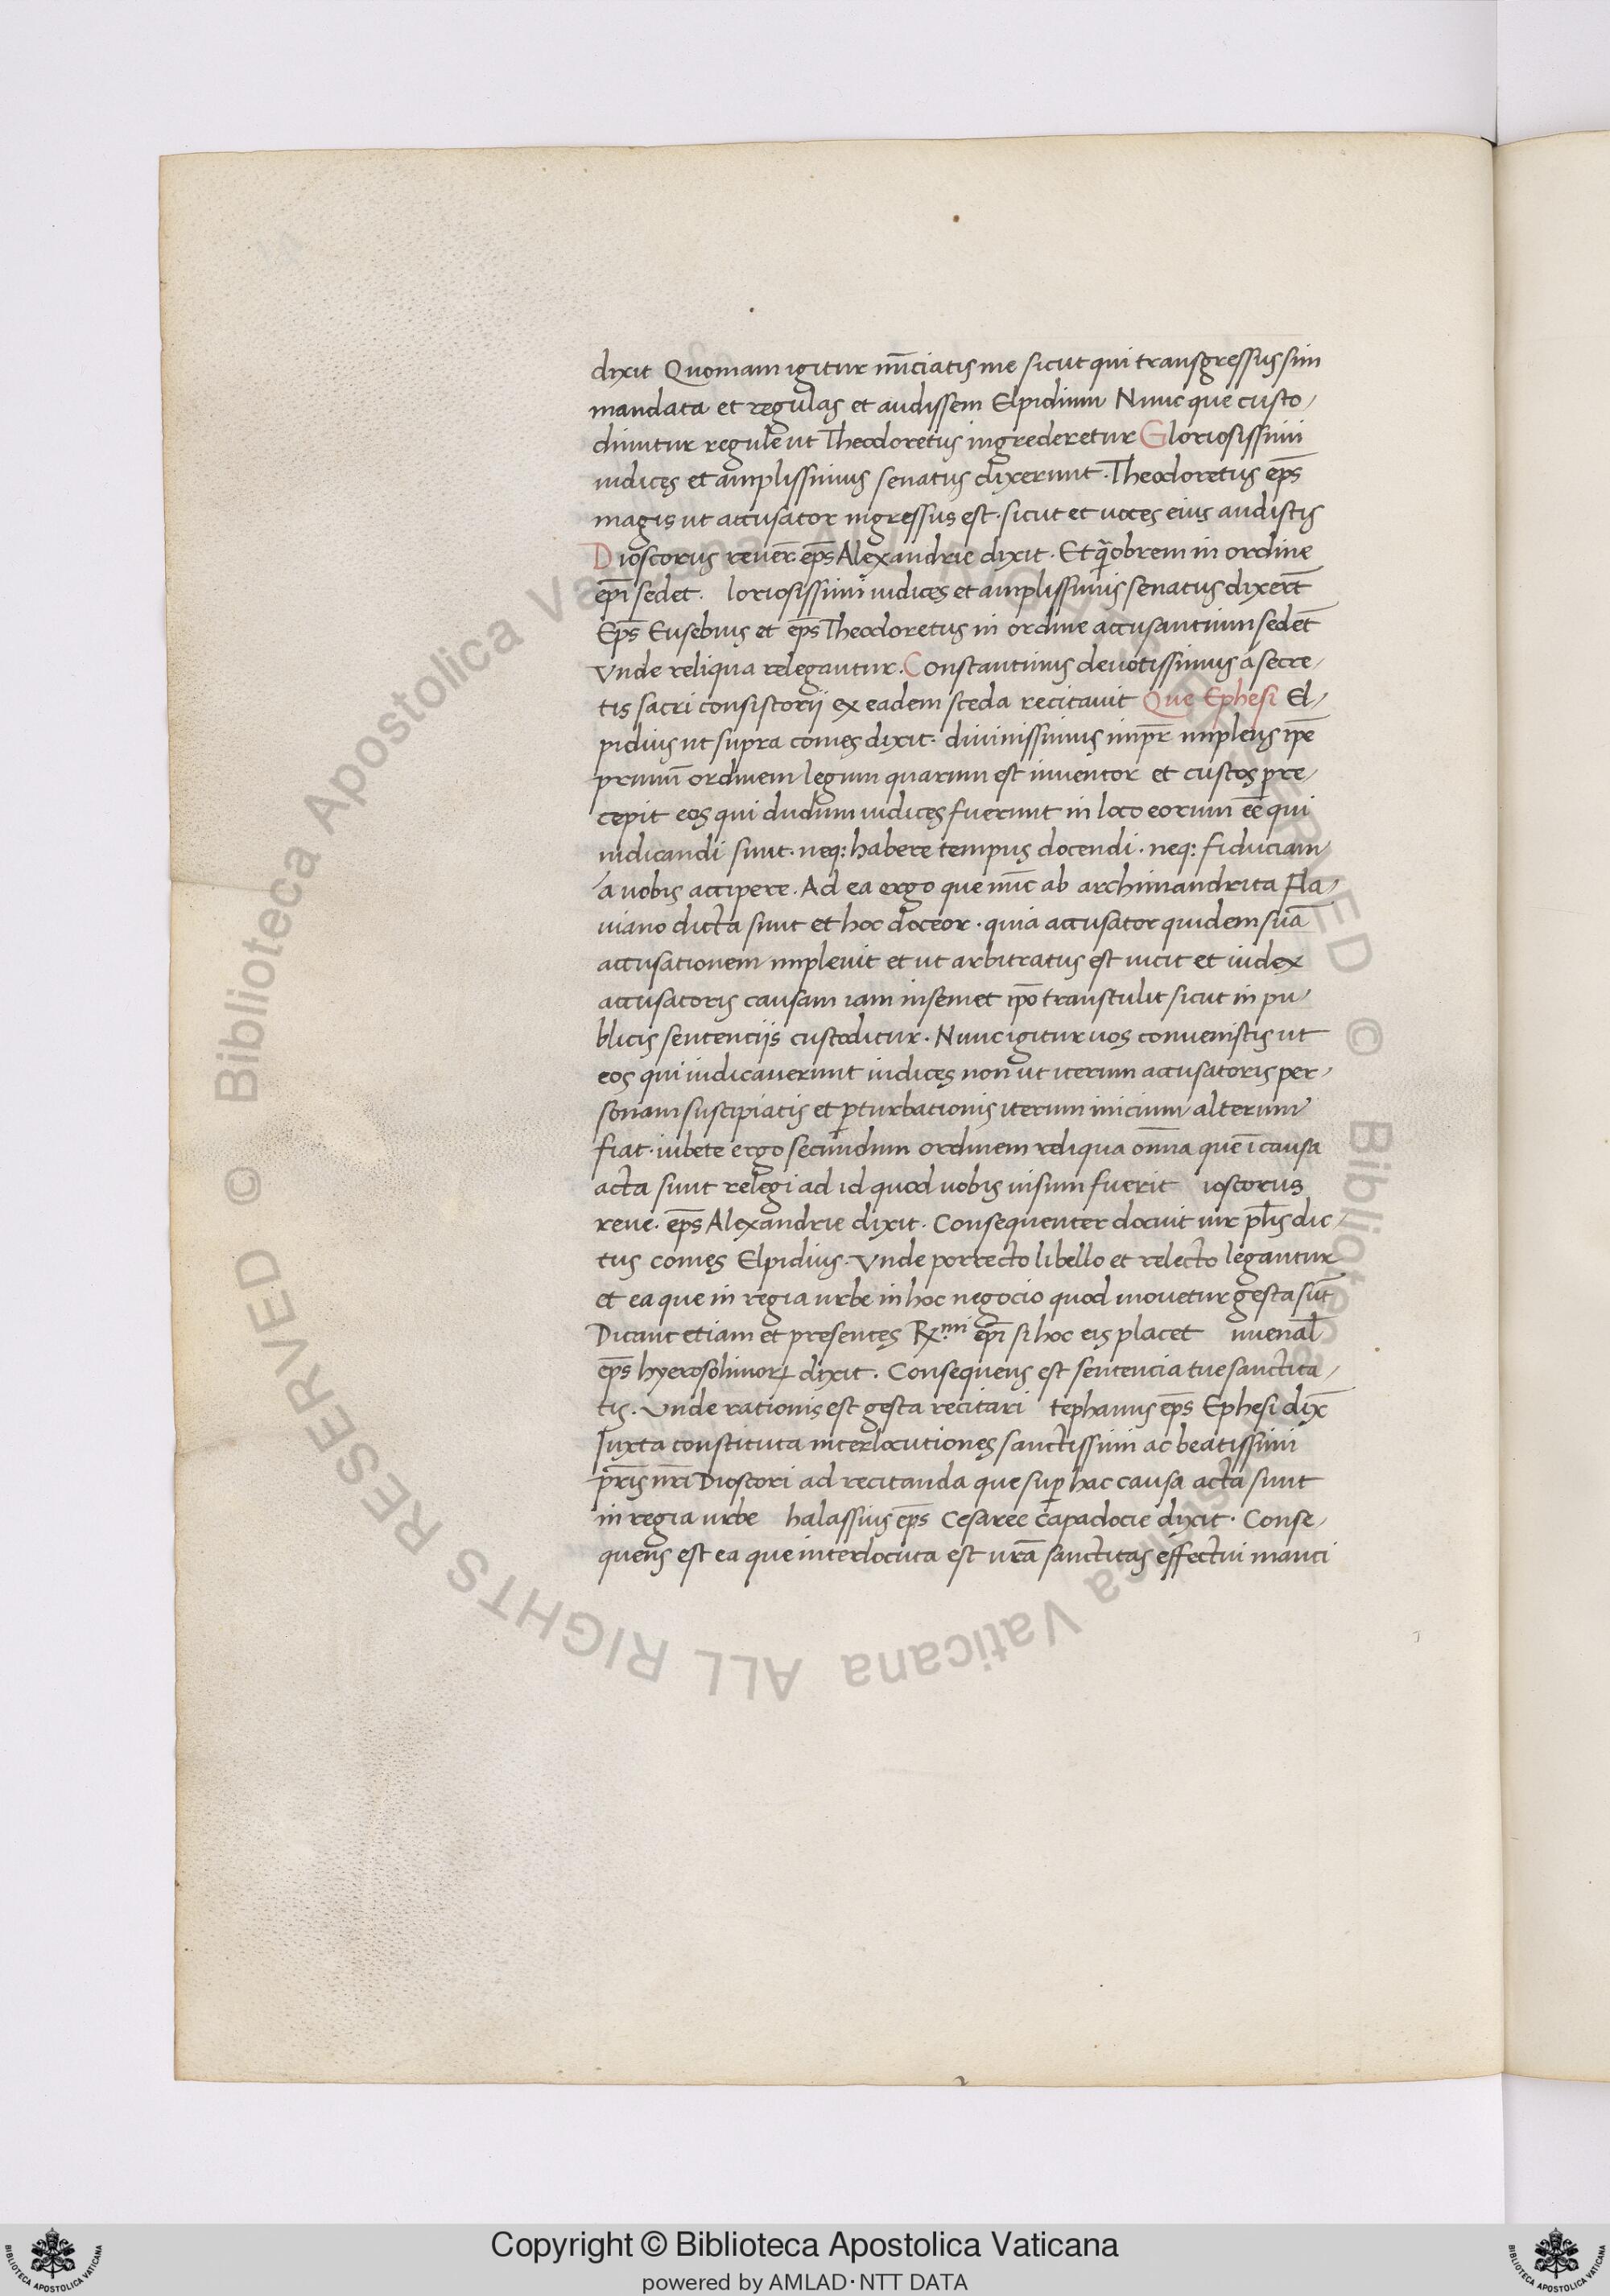 dixit Quoniam igitur nūciatis me sicut qui transgressus sim
mandata et regulas et audissem Elpidium Nunc que custo,
diuntur regule ut Theodoretus ingrederetur Gloriosissimi
iudices et amplissimus senatus dixerunt. Theodoretus ep̄s
magis ut accusator ingressus est. sicut et uoces eius audistis
Dioscorus reuer̄. ep̄s Alexandrie dixit. Et q̄obrem in ordine
ep̄i sedet. loriosissimi iudices et amplissimus senatus dixer̄t
Ep̄s Eusebius et ep̄s Theodoretus in ordine accusantium sedēt
Vnde reliqua relegantur. Constantinus deuotissimus á secre,
tis sacri consistorij ex eadem sceda recitauit Que Ephesi El,
pidius ut supra comes dixit. diuinissimus imp̄r implens ip̄e
primū ordinem legum quarum est inuentor et custos pre,
cepit eos qui dudum iudices fuerunt in loco eorum eē qui
iudicandi sunt. neq: habere tempus docendi. neq: fiduciam
a uobis accipere. Ad ea ergo que nūc ab archimandrita Fla,
uiano dicta sunt et hoc doceor. quia accusator quidem suā
accusationem impleuit et ut arbitratus est uicit et iudex
accusatoris causam iam in semet ip̄o transtulit sicut in pu,
blicis sentencijs custoditur. Nunc igitur uos conuenistis ut
eos qui iudicauerunt iudices non ut iterum accusatoris per,
sonam suscipiatis et ꝑturbationis iterum inicium alterum
fiat. iubete ergo secundum ordinem reliqua om̄a que ī causa
acta sunt relegi ad id quod uobis uisum fuerit ioscorus
reue. ep̄s Alexandrie dixit. Consequenter docuit uir p̄l̄is dic,
tus comes Elpidius. Vnde porrecto libello et relecto legantur
et ea que in regia urbe in hoc negocio quod mouetur gesta sūt
Dicant etiam et presentes Rx.mi ep̄i si hoc eis placet uuenal̄
ep̄s hyerosolimoꝝ dixit. Consequens est sentencia tue sanctita,
tis. Vnde rationis est gesta recitari tephanus ep̄s Ephesi dix̄
Iuxta constituta interlocutiones sanctissimi ac beatissimi
p̄ris nr̄i Dioscori ad recitanda que suꝑ hac causa acta sunt
in regia urbe halassius ep̄s Cesaree capadocie dixit. Conse,
quens est ea que interlocuta est ur̄a sanctitas effectui manci
Copyright © Biblioteca Apostolica Vaticana
powered by AMLAD·NTT DATA